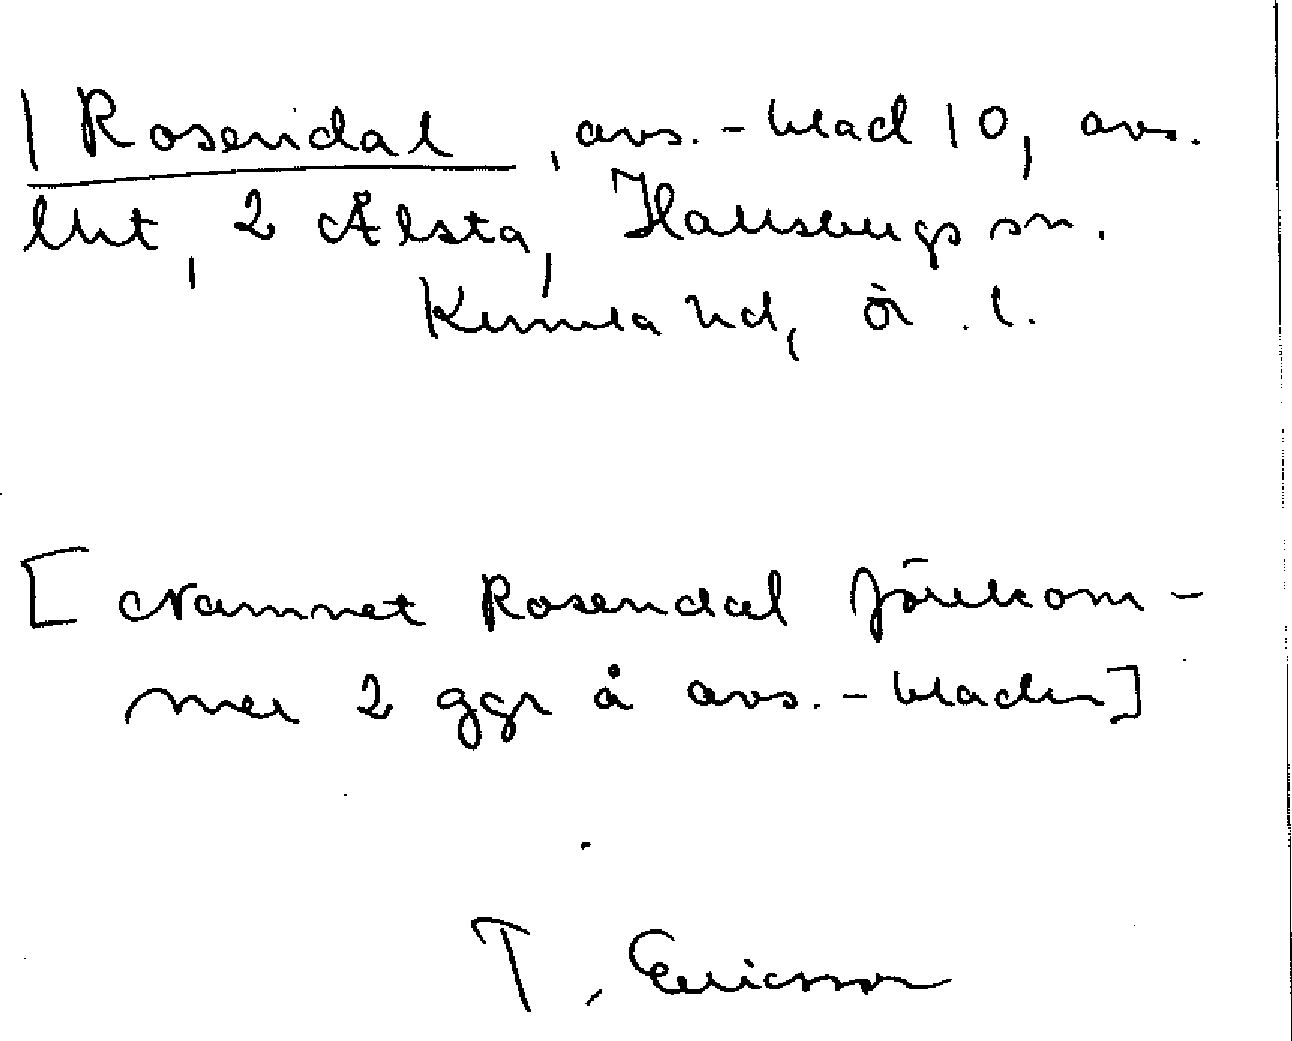 | Rosendal, avs.-blad 10, avs.
lht, 2 Ålsta, Hallsbergs sn.
Kumla hd, Ör. l.
[Namnet Rosendal förekom-
mer 2 ggr å avs.-bladen]
T. Ericsson